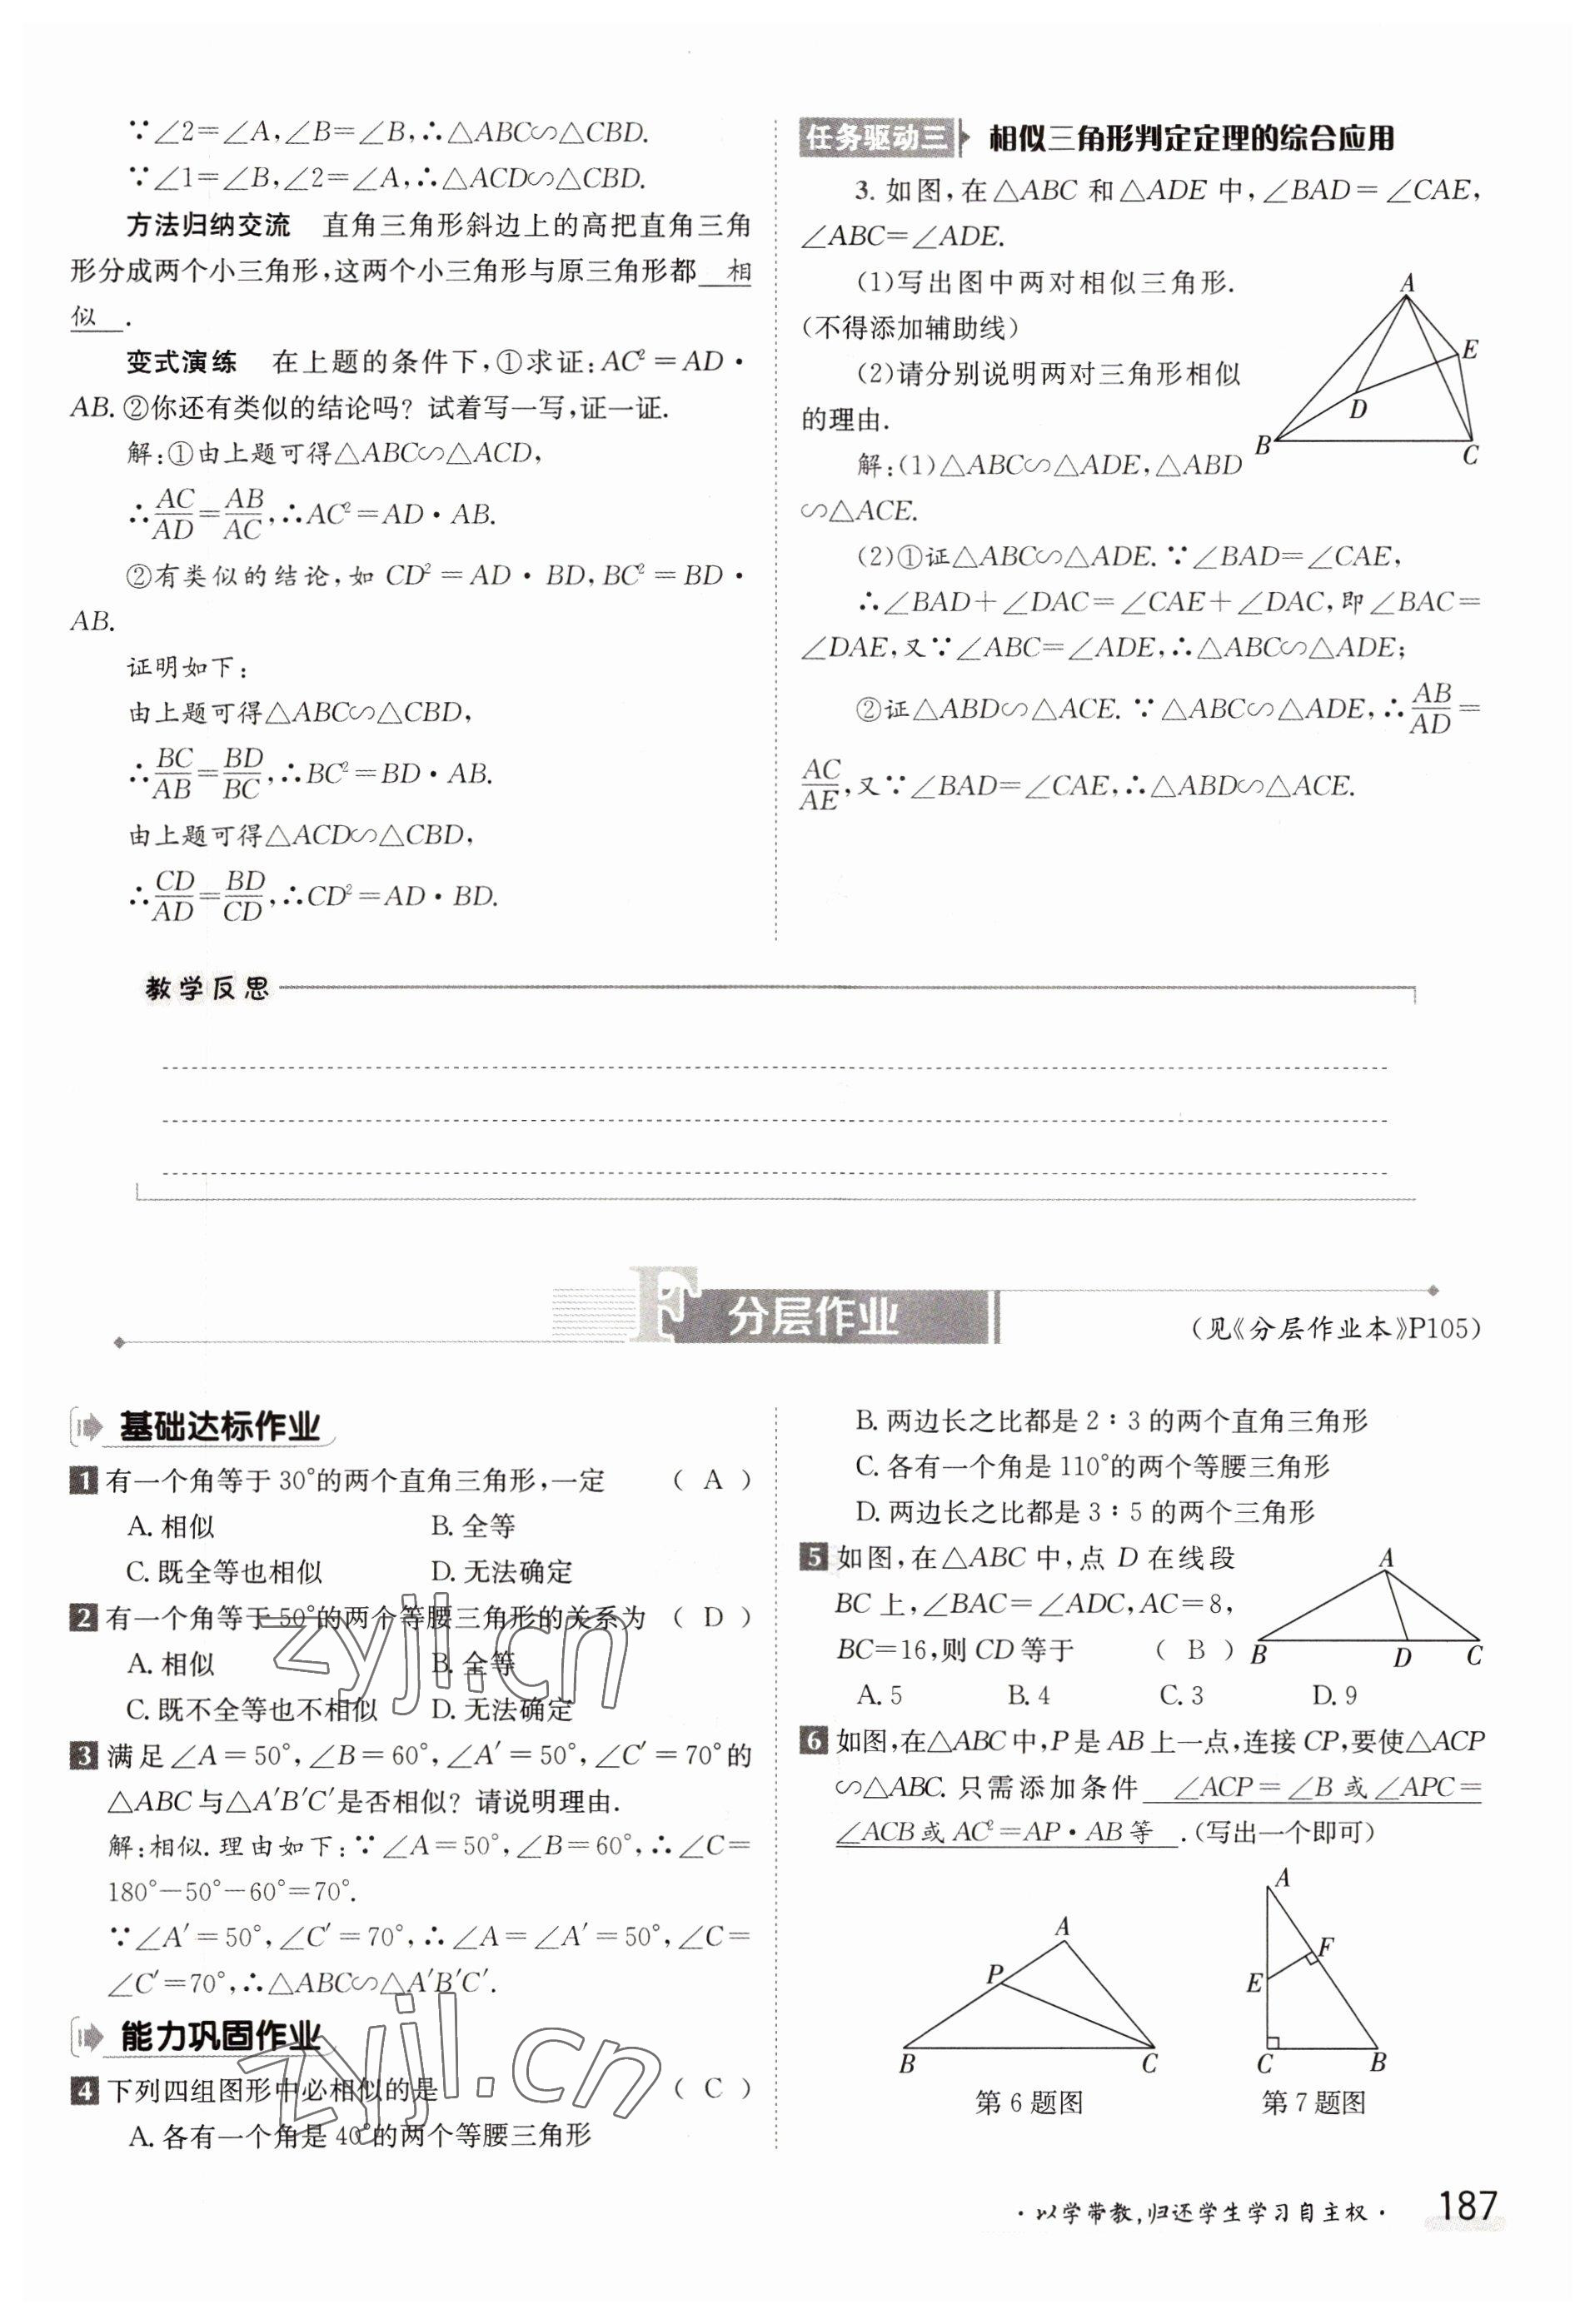 ∵∠2=∠A,∠B=∠B,∴△ABC∽△CBD.
∵∠1=∠B,∠2=∠A,∴△ACD∽△CBD.
方法归纳交流 直角三角形斜边上的高把直角三角
形分成两个小三角形,这两个小三角形与原三角形都 相
似 .
变式演练 在上题的条件下,①求证:AC²=AD·
AB.②你还有类似的结论吗?试着写一写,证一证.
解:①由上题可得△ABC∽△ACD,
∴AC/AD=AB/AC,∴AC²=AD·AB.
②有类似的结论,如 CD²=AD·BD,BC²=BD·
AB.
证明如下:
由上题可得△ABC∽△CBD,
∴BC/AB=BD/BC,∴BC²=BD·AB.
由上题可得△ACD∽△CBD,
∴CD/AD=BD/CD,∴CD²=AD·BD.
任务驱动三 相似三角形判定定理的综合应用
3.如图,在△ABC 和△ADE 中,∠BAD=∠CAE,
∠ABC=∠ADE.
(1)写出图中两对相似三角形.
(不得添加辅助线)
(2)请分别说明两对三角形相似
的理由.
A
E
D
B
C
解:(1)△ABC∽△ADE,△ABD
∽△ACE.
(2)①证△ABC∽△ADE.∵∠BAD=∠CAE,
∴∠BAD+∠DAC=∠CAE+∠DAC,即∠BAC=
∠DAE,又∵∠ABC=∠ADE,∴△ABC∽△ADE;
②证△ABD∽△ACE.∵△ABC∽△ADE,∴AB/AD=
AC/AE,又∵∠BAD=∠CAE,∴△ABD∽△ACE.
教学反思
F 分层作业
(见《分层作业本》P105)
基础达标作业
1 有一个角等于 30°的两个直角三角形,一定 ( A )
A.相似 B.全等
C.既全等也相似 D.无法确定
2 有一个角等于 50°的两个等腰三角形的关系为 ( D )
A.相似 B.全等
C.既不全等也不相似 D.无法确定
3 满足∠A=50°,∠B=60°,∠A′=50°,∠C′=70°的
△ABC 与△A′B′C′是否相似?请说明理由.
解:相似.理由如下:∵∠A=50°,∠B=60°,∴∠C=
180°-50°-60°=70°.
∵∠A′=50°,∠C′=70°,∴∠A=∠A′=50°,∠C=
∠C′=70°,∴△ABC∽△A′B′C′.
能力巩固作业
4 下列四组图形中必相似的是 ( C )
A.各有一个角是 40°的两个等腰三角形
B.两边长之比都是 2∶3 的两个直角三角形
C.各有一个角是 110°的两个等腰三角形
D.两边长之比都是 3∶5 的两个三角形
5 如图,在△ABC 中,点 D 在线段
BC 上,∠BAC=∠ADC,AC=8,
BC=16,则 CD 等于 ( B )
A
B
D
C
A.5 B.4 C.3 D.9
6 如图,在△ABC 中,P 是 AB 上一点,连接 CP,要使△ACP
∽△ABC.只需添加条件 ∠ACP=∠B 或∠APC=
∠ACB 或 AC²=AP·AB 等 .(写出一个即可)
A
P
B
C
第 6 题图
A
F
E
C
B
第 7 题图
zyjl.cn
zyjl.cn
·以学带教,归还学生学习自主权· 187